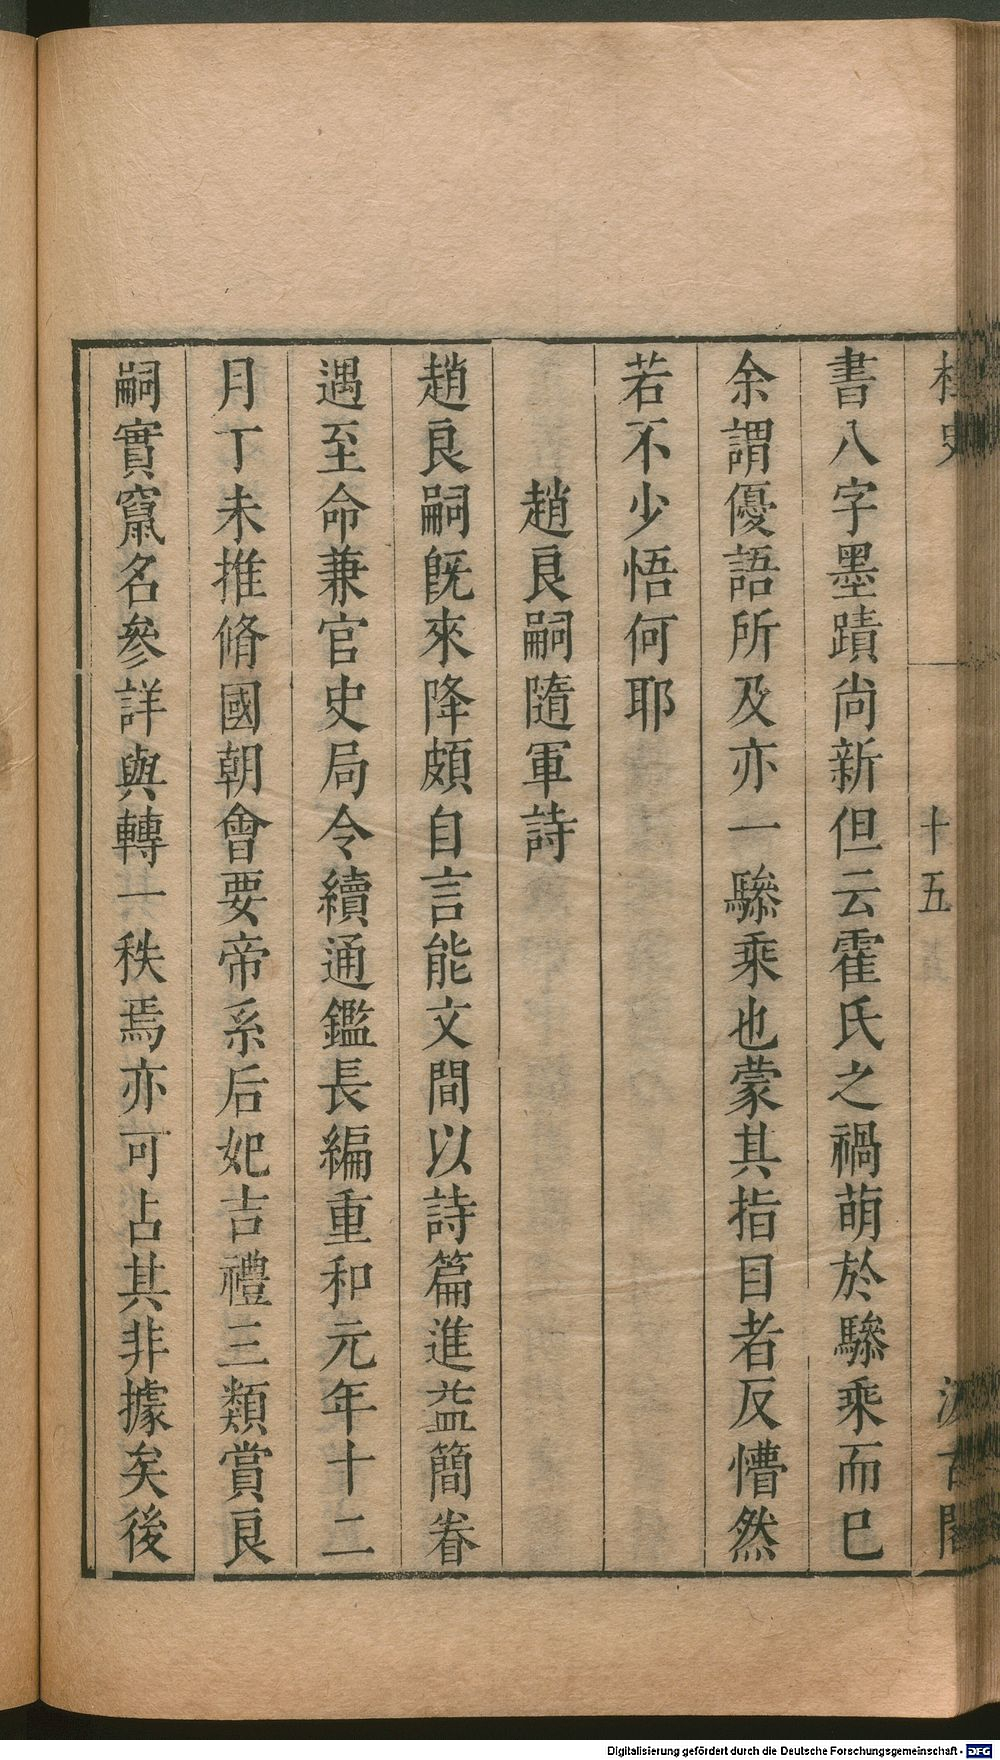 桯史
十五
汲古閣
書八字墨蹟尚新但云霍氏之禍萌於驂乘而已
余謂優語所及亦一驂乘也蒙其指目者反懵然
若不少悟何耶
趙良嗣隨軍詩
趙良嗣旣來降頗自言能文間以詩篇進益簡眷
遇至命兼官史局令續通鑑長編重和元年十二
月丁未推脩國朝會要帝系后妃吉禮三類賞良
嗣實竄名參詳與轉一秩焉亦可占其非據矣後
Digitalisierung gefördert durch die Deutsche Forschungsgemeinschaft - DFG